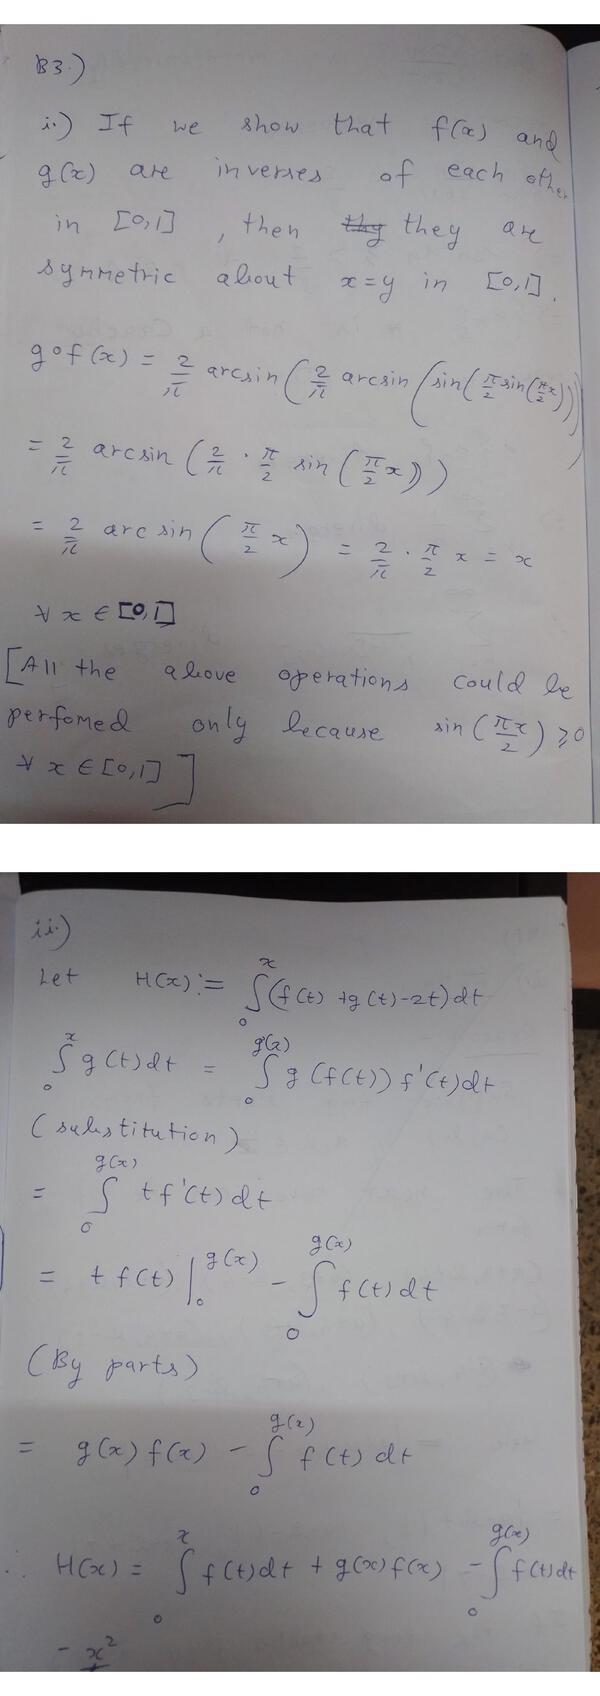 B3.)
i.) If we show that f(x) and
g(x) are inverses of each other
in [0,1] , then they they are
symmetric about x=y in [0,1].
g∘f(x) = 2/π arcsin(2/π arcsin(sin(π/2 sin(πx/2))))
= 2/π arcsin(2/π · π/2 sin(π/2 x)))
= 2/π arc sin(π/2 x) = 2/π · π/2 x = x
∀ x ∈ [0,1]
[All the above operations could be
perfomed only because sin(πx/2) ≥ 0
∀ x ∈ [0,1] ]
ii.)
Let H(x) := ∫₀ˣ (f(t) + g(t) - 2t) dt
∫₀ˣ g(t) dt = ∫₀^g(x) g(f(t)) f'(t) dt
(substitution)
= ∫₀^g(x) t f'(t) dt
= t f(t) |₀^g(x) - ∫₀^g(x) f(t) dt
(By parts)
= g(x) f(x) - ∫₀^g(x) f(t) dt
∴ H(x) = ∫₀ˣ f(t) dt + g(x) f(x) - ∫₀^g(x) f(t) dt
- x²